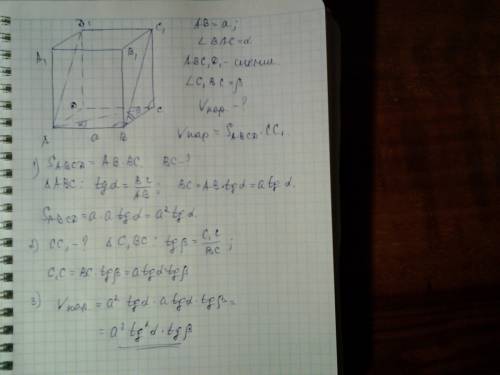 D₁ C₁
A₁ B₁
D C
A a B
AB = a;
∠BAC = α
ABC₁D₁ - сечение
∠C₁BC = β
Vпар - ?
Vпар = S_ABCD · CC₁
1) S_ABCD = AB · BC BC - ?
△ABC: tgα = BC/AB; BC = AB · tgα = a tgα.
S_ABCD = a · a tgα = a² tgα.
2) CC₁ - ? △C₁BC: tgβ = C₁C/BC;
C₁C = BC · tgβ = a tgα tgβ
3) Vпар = a² tgα · a tgα · tgβ =
= a³ tg²α · tgβ